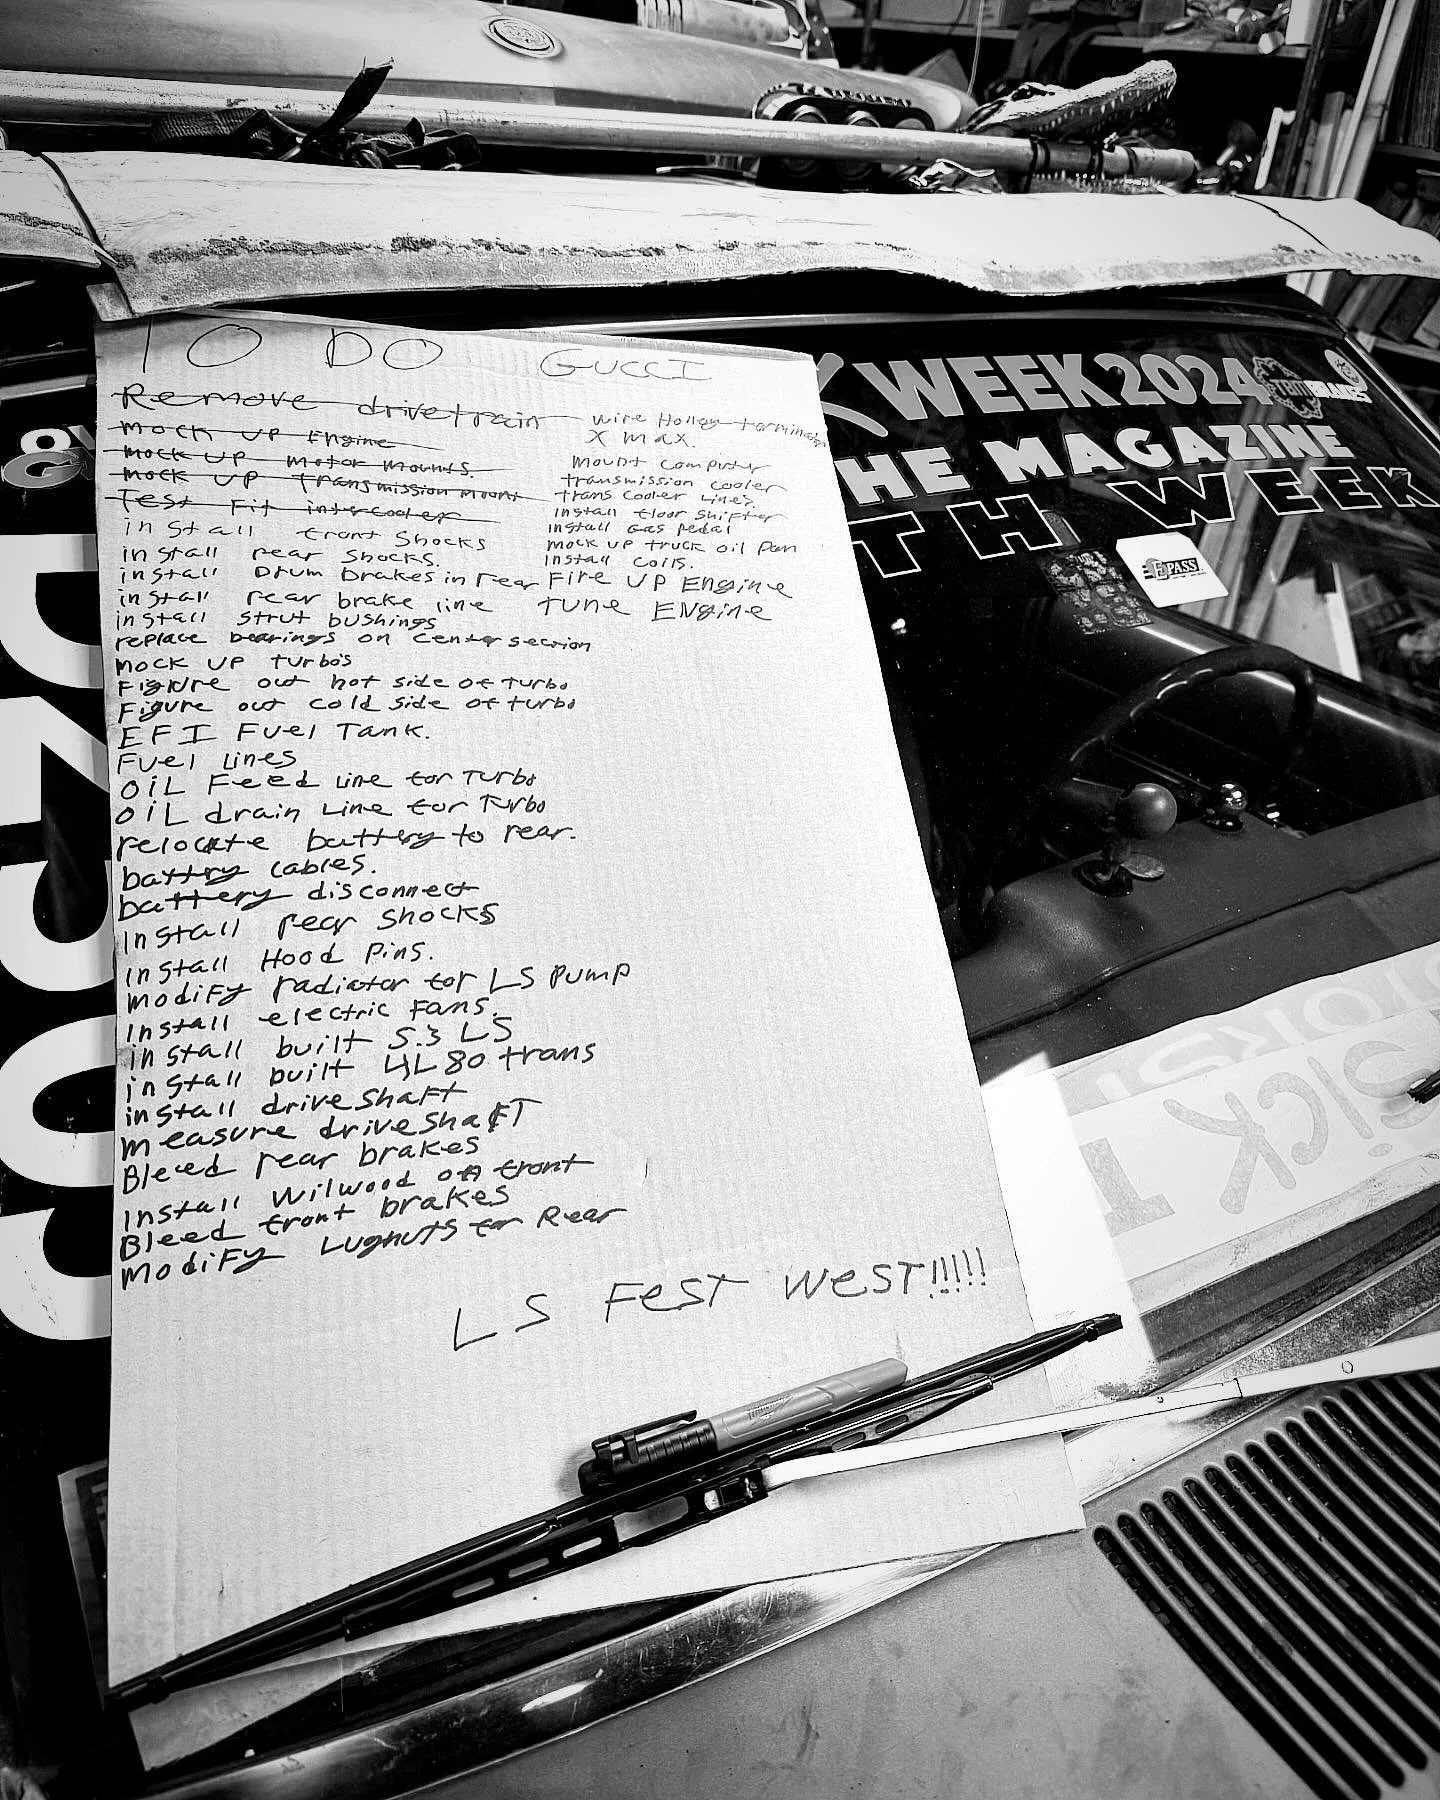 TO DO GUCCI
Remove drivetrain
mock up Engine
mock up motor mounts
mock up Transmission mount
Test Fit intercooler
install front shocks
install rear shocks.
install Drum brakes in rear
install rear brake line
install strut bushings
replace bearings on center section
mock up turbo's
Figure out hot side of turbo
Figure out cold side of turbo
EFI Fuel Tank.
Fuel Lines
OIL Feed Line for Turbo
OIL drain Line for Turbo
relocate battery to rear.
battery cables.
battery disconnect
Install rear shocks
Install Hood Pins.
modify radiator for LS pump
Install electric Fans.
install built 5.3 LS
install built 4L80 trans
install driveshaft
measure driveshaft
Bleed rear brakes
Install Wilwood on front
Bleed front brakes
Modify Lugnuts for Rear
wire Holley terminator
X max.
Mount computer
transmission cooler
trans cooler lines
Install floor shifter
Install Gas pedal
mock up truck oil pan
Install coils.
Fire up Engine
Tune Engine
LS FEST WEST!!!!!
WEEK 2024
HE MAGAZINE
TH WEEK
EPASS
SICK